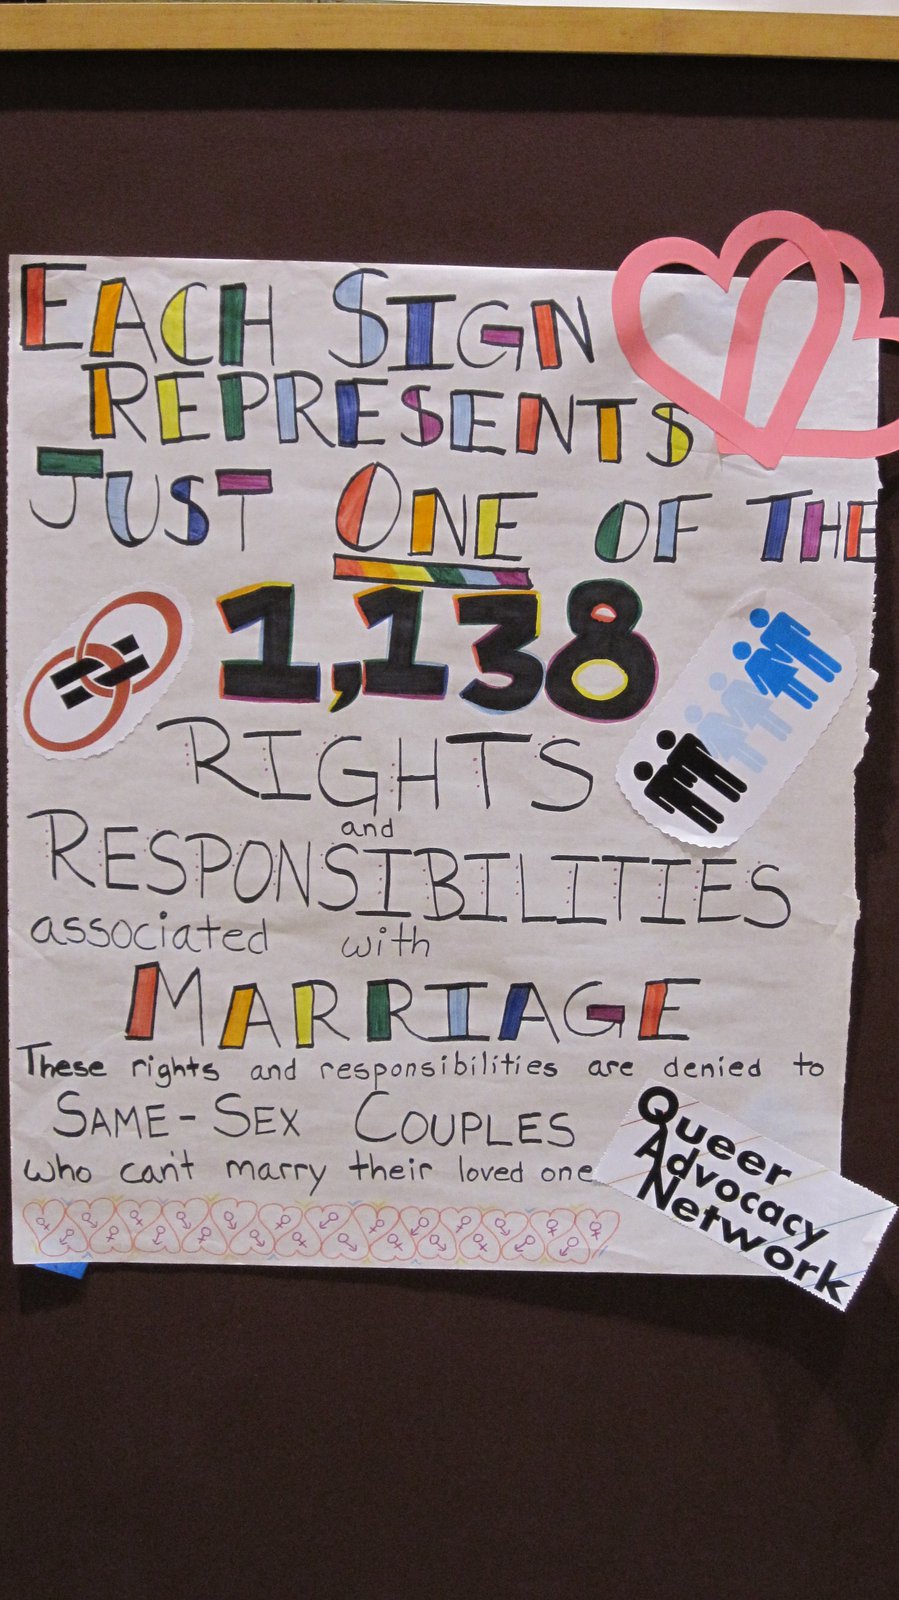 EACH SIGN
REPRESENTS
JUST ONE OF THE
1,138
RIGHTS
and
RESPONSIBILITIES
associated with
MARRIAGE
These rights and responsibilities are denied to
SAME-SEX COUPLES
who can't marry their loved one
Queer
Advocacy
Network